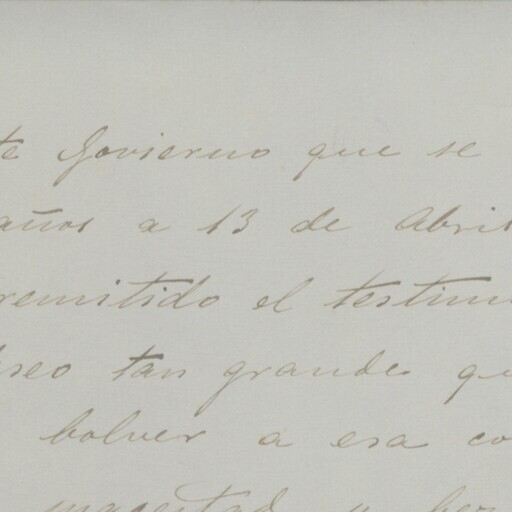 te Govierno que se
años a 13 de Abril
remitido el testim
seo tan grande qu
bolver a esa co
magestad y her